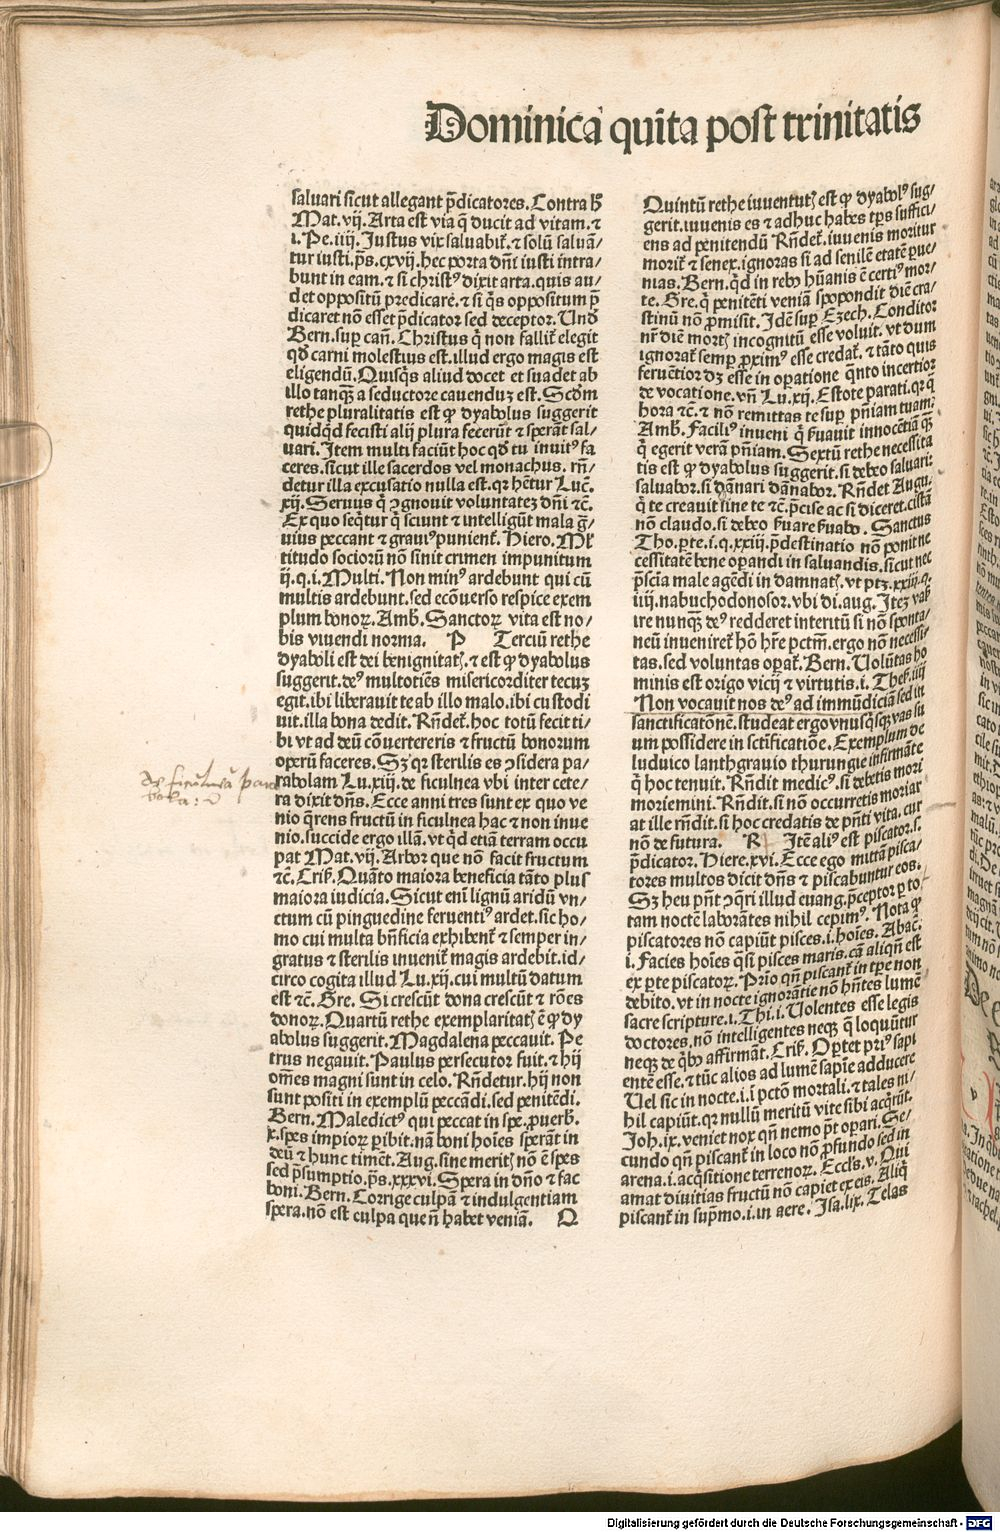 Dominica quīta post trinitatis
saluari sicut allegant p̄dicatores. Contra hͦ
Mat. vij. Arta est via q̄ ducit ad vitam. ⁊
i. Pe. iiij. Justus vix saluabiť. ⁊ solū saluā⸗
tur iusti. p̄s. cxvij. hec porta dn̄i iusti intra⸗
bunt in eam. ⁊ si christꝰ dixit arta. quis au⸗
det oppositū predicare. ⁊ si q̄s oppositum p̄
dicaret nō esset p̄dicator sed deceptor. Unď
Bern. suꝑ cañ. Christus q̄ non falliť elegit
qď carni molestius est. illud ergo magis est
eligendū. Quisq̄s aliud docet et suadet ab
illo tanqꝫ a seductore cauenduꝫ est. Scďm
rethe pluralitatis est ꝙ dyabolus suggerit
quidqͥd fecisti alij plura fecerūt ⁊ sperāt sal⸗
uari. Item multi faciūt hoc qď tu inuitꝰ fa
ceres. sicut ille sacerdos vel monachus. rn̄⸗
detur illa excusatio nulla est. qꝛ hētur Luč.
xij. Seruus q̄ ꝯgnouit voluntateꝫ dn̄i ⁊č.
Ex quo seqͥtur q̄ sciunt ⁊ intelligūt mala g̃⸗
uius peccant ⁊ grauiꝰ punienť. Hiero. Mľ
titudo sociorū nō sinit crimen impunitum
ij. q. i. Multi. Non minꝰ ardebunt qui cū
multis ardebunt. sed ecōuerso respice exem
plum bonoꝝ. Amb. Sanctoꝝ vita est no⸗
bis viuendi norma. P Terciū rethe
dyaboli est dei benignitatꝭ. ⁊ est ꝙ dyabolus
suggerit. deꝰ multotiēs misericorditer tecuꝫ
egit. ibi liberauit te ab illo malo. ibi custodi
uit. illa bona dedit. Rn̄deť. hoc totū fecit ti⸗
bi vt ad deū cōuertereris ⁊ fructū bonorum
operū faceres. Sꝫ qꝛ sterilis es ꝯsidera pa⸗
rabolam Lu. xiij. de ficulnea vbi inter cete⸗
ra dixit dn̄s. Ecce anni tres sunt ex quo ve
nio q̄rens fructū in ficulnea hac ⁊ non inue
nio. succide ergo illā. vt qͥd etiā terram occu
pat Mat. vij. Arbor que nō facit fructum
⁊č. Criſ. Quāto maiora beneficia tāto plus
maiora iudicia. Sicut eni̅ lignū aridū vn⸗
ctum cū pinguedine feruentiꝰ ardet. sic ho⸗
mo cui multa bn̄ficia exhibenť ⁊ semper in⸗
gratus ⁊ sterilis inueniť magis ardebit. id⸗
circo cogita illud Lu. xij. cui multū datum
est ⁊č. Gre. Si crescūt dona crescūt ⁊ rōes
donoꝝ. Quartū rethe exemplaritatꝭ ē ꝙ dy
abolus suggerit. Magdalena peccauit. Pe
trus negauit. Paulus persecutor fuit. ⁊ hij
om̄es magni sunt in celo. Rn̄detur. hij non
sunt positi in exemplū peccādi. sed penitēdi.
Bern. Maledictꝰ qui peccat in spe. ꝓuerb.
x. spes impioꝝ ꝑibit. nā boni hoīes sperāt in
deū ⁊ hunc timēt. Aug. sine meritꝭ nō ē spes
sed p̄sumptio. p̄s. xxxvi. Spera in dn̄o ⁊ fac
boni. Bern. Corrige culpā ⁊ indulgentiam
spera. nō est culpa que n̄ habet veniā. Q
Quintū rethe iuuentutꝭ est ꝙ dyabolꝰ sug⸗
gerit. iuuenis es ⁊ adhuc habes tp̄s suffici⸗
ens ad penitendū Rn̄deť. iuuenis moritur
moriť ⁊ senex. ignoras si ad senilē etatē ꝑue⸗
nias. Bern. qͥd in rebꝰ hūanis ē certiꝰ mor⸗
te. Gre. q̄ penitēti veniā spopondit diē cra⸗
stinū nō ꝓmisit. Idē suꝑ Ezech. Conditor
nr̄ diē mortꝭ incognitū esse voluit. vt dum
ignorať semꝑ ꝓximꝰ esse credať. ⁊ tāto quis
feruētior dꝫ esse in oꝑatione qn̄to incertior
de vocatione. vn̄ Lu. xij. Estote parati. qꝛ q̄
hora ⁊č. ⁊ nō remittas te suꝑ pn̄iam tuam.
Amb. Faciliꝰ inueni q̄ ẜuauit innocētiā qꝫ
q̄ egerit verā pn̄iam. Sextū rethe necessita
tis est ꝙ dyabolus suggerit. si debeo saluari:
saluabor. si dānari dānabor. Rn̄det Augu.
q̄ te creauit sine te ⁊č. p̄cise ac si diceret. cistā
nō claudo. si debeo ẜuare ẜuabo. Sanctus
Tho. ꝑte. i. q. xxiij. p̄destinatio nō ponit ne
cessitatē bene oꝑandi in saluandis. sicut nec
p̄scia male agēdi in damnatꝭ. vt ptꝫ. xxiij. q.
iiij. nabuchodonosor. vbi di. aug. Iteꝫ vař
ire nunqꝫ deꝰ redderet interitū si nō sponta⸗
neū inueniret hō hr̄e pctm̄. ergo nō necessi⸗
tas. sed voluntas oꝑať. Bern. Volūtas ho
minis est origo vicij ⁊ virtutis. i. Theſ. iiij
Non vocauit nos deꝰ ad immūdiciā sed in
sanctificatōnē. studeat ergo vnusqͥsqꝫ vas su
um possidere in sctīficatiōe. Exemplum de
luduico lanthgrauio thurungie infirmāte
q̄ hoc tenuit. Rn̄dit medicꝰ. si debetis mori
moriemini. Rn̄dit. si nō occurretis moriar
at ille rn̄dit. si hoc credatis de pn̄ti vita. cur
nō de futura. R Itē aliꝰ est piscator. s.
p̄dicator. Hiere. xvi. Ecce ego mittā pisca⸗
tores multos dicit dn̄s ⁊ piscabuntur eos.
Sꝫ heu pn̄t ꝯqͥri illud euang. p̄ceptor ꝑ to⸗
tam noctē laborātes nihil cepimꝰ. Nota ꝙ
piscatores nō capiūt pisces. i. hoīes. Abač.
i. Facies hoīes q̄si pisces maris. cā aliqn̄ est
ex ꝑte piscatoꝝ. Prīo qn̄ piscanť in tp̄e non
debito. vt in nocte ignorātie nō hn̄tes lumē
sacre scripture. i. Thi. i. Volentes esse legis
doctores. nō intelligentes neqꝫ q̄ loquūtur
neqꝫ de qͥbꝰ affirmāt. Criſ. Oꝑtet priꝰ sapi
entē esse. ⁊ tūc alios ad lumē sapīe adducere
Vel sic in nocte. i. i pctō mortali. ⁊ tales ni⸗
hil capiūt. qꝛ nullū meritū vite sibi acq̄rūt.
Joh. ix. veniet nox qn̄ nemo pt̄ oꝑari. Se⸗
cundo qn̄ piscanť in loco nō ꝓfundo sed in
arena. i. acq̄sitione terrenoꝝ. Eccl's. v. Qui
amat diuitias fructū nō capiet ex eis. Aliq̄
piscanť in sup̄mo. i. in aere. Isa. lix. Telas
Digitalisierung gefördert durch die Deutsche Forschungsgemeinschaft - DFG